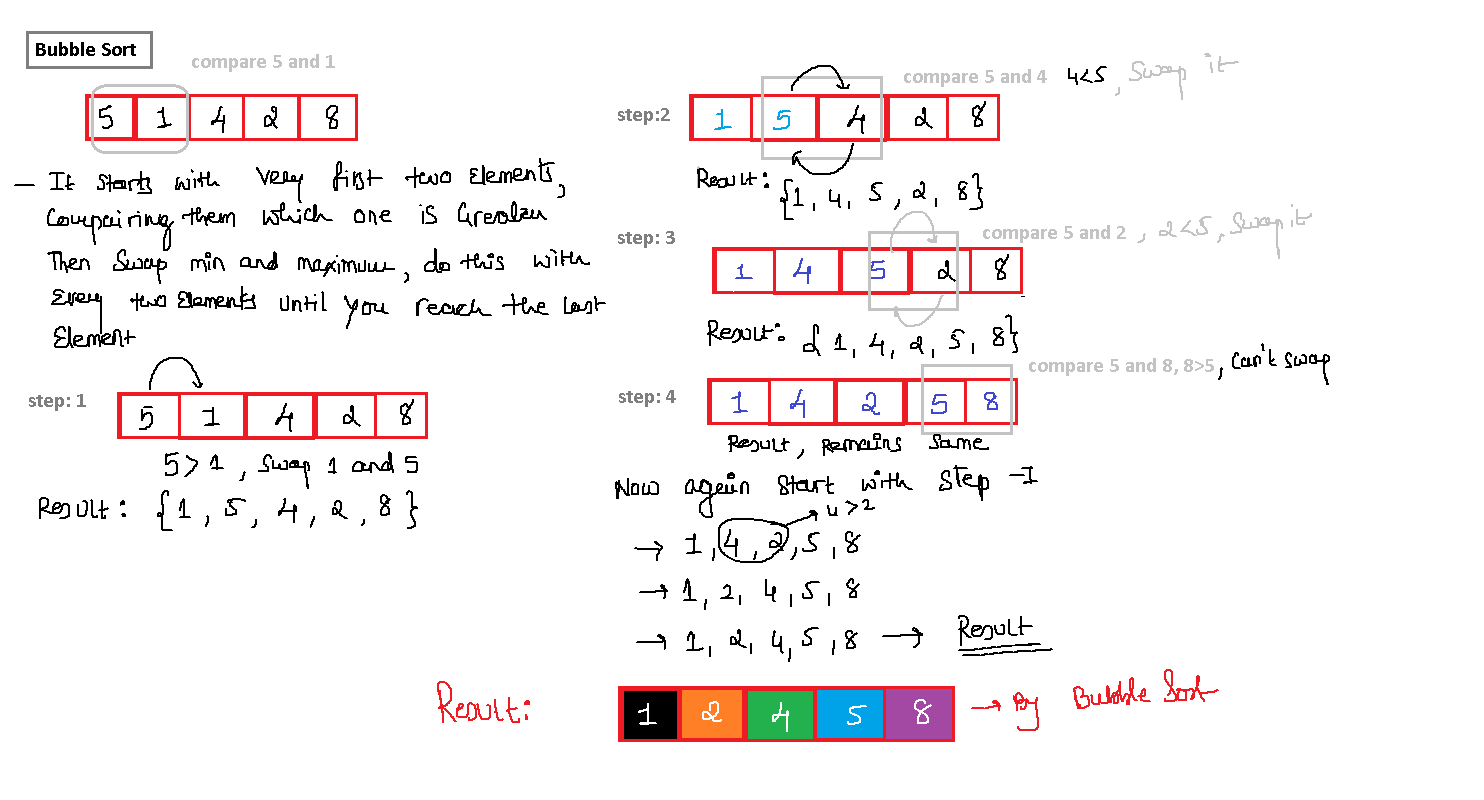 Bubble Sort
compare 5 and 1
5 1 4 2 8
— It starts with very first two Elements,
Compairing them which one is Greater
Then Swap min and maximum, do this with
Every two Elements until you reach the last
Element
step: 1
5 1 4 2 8
5 > 1 , Swap 1 and 5
Result: {1, 5, 4, 2, 8}
compare 5 and 4 4<5, Swap it
step:2
1 5 4 2 8
Result: {1, 4, 5, 2, 8}
step: 3
compare 5 and 2 , 2<5, Swap it
1 4 5 2 8
Result: {1, 4, 2, 5, 8}
compare 5 and 8, 8>5, Can't swap
step: 4
1 4 2 5 8
Result, Remains Same
Now again Start with Step -I
4 > 2
→ 1, 4, 2, 5, 8
→ 1, 2, 4, 5, 8
→ 1, 2, 4, 5, 8 → Result
Result: 1 2 4 5 8 → By Bubble Sort